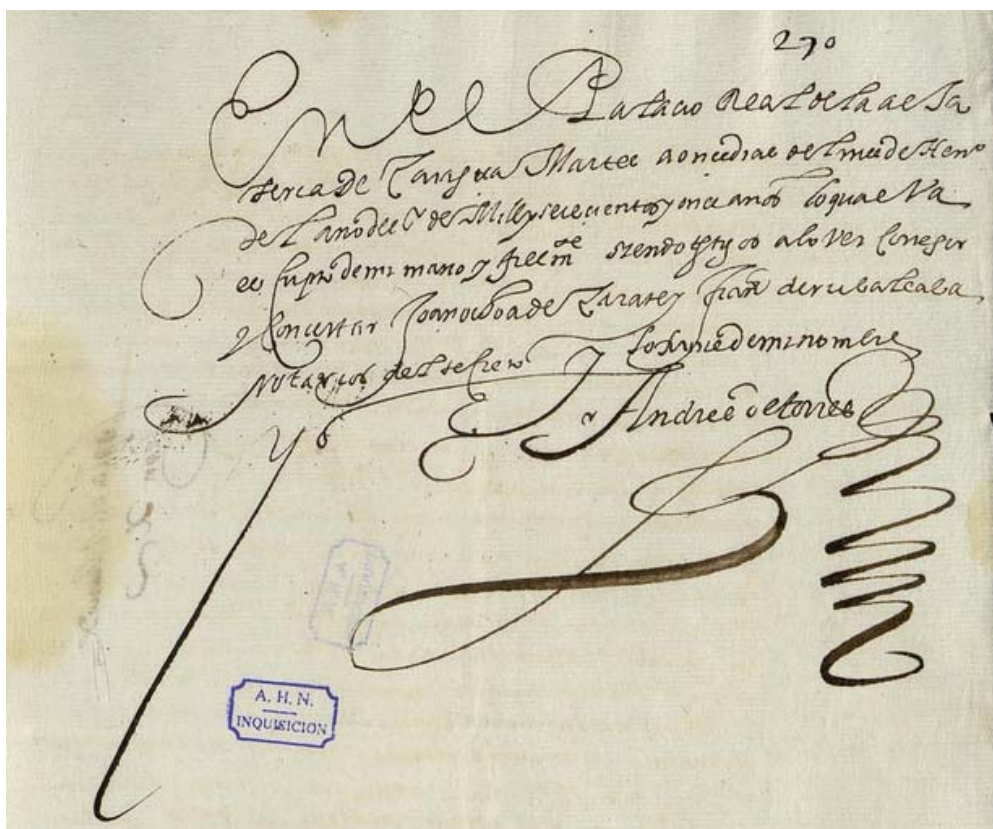 270
En el Palacio Real de la alja
feria de Zaragoça Martes a once dias del mes de Hen.o
del año del S.r de Mill y seiscientos y once años lo qual va
es cripto de mi mano y fielm.te siendo tgtigos a lo ver Corregir
y Concertar Joan ochoa de Zarate y Fran.co de rubalcaba
Notarios del secreto
lo signé de mi nombre
Andres de torres
A. H. N.
INQUISICION